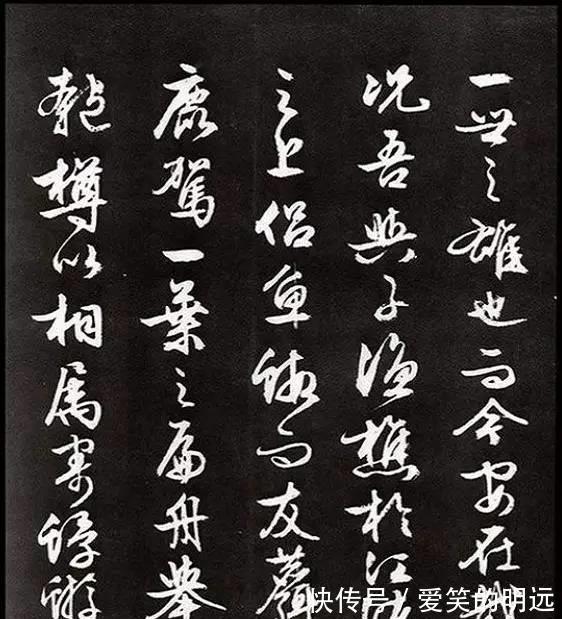 一世之雄也而今安在哉
况吾與子漁樵於江渚
之上侣魚鰕而友麋
鹿駕一葉之扁舟舉
匏樽以相属寄蜉蝣
快传号 / 爱笑的明远